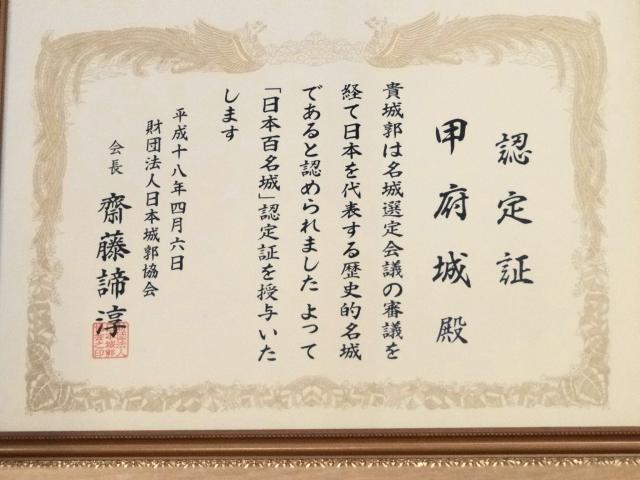 認定証
甲府城殿
貴城郭は名城選定会議の審議を
経て日本を代表する歴史的名城
であると認められました よって
「日本百名城」認定証を授与いた
します
平成十八年四月六日
財団法人日本城郭協会
会長 齋藤諦淳